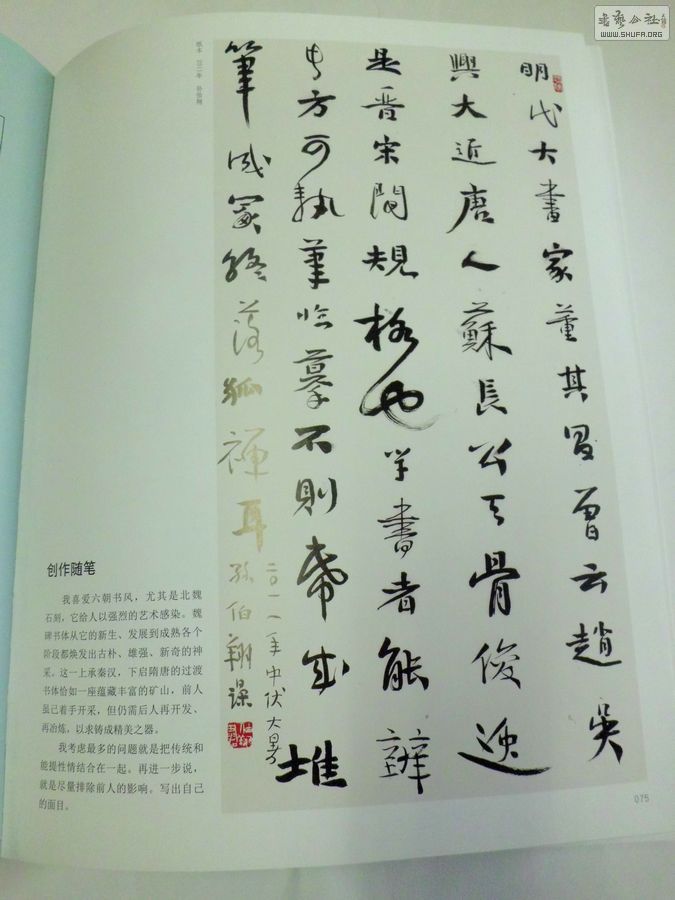 書藝公社
WWW.SHUFA.ORG
明代大書家董其昌曾云趙吴
興大近唐人蘇長公天骨俊逸
是晋宋間規格也学書者能辨
此方可執筆臨摹不則帋成堆
二〇一一年中伏大暑
筆成冢終落狐禪耳孫伯翔
纸本 2011年 孙伯翔
创作随笔
我喜爱六朝书风，尤其是北魏
石刻，它给人以强烈的艺术感染。魏
碑书体从它的新生、发展到成熟各个
阶段都焕发出古朴、雄强、新奇的神
采。这一上承秦汉，下启隋唐的过渡
书体恰如一座蕴藏丰富的矿山，前人
虽已着手开采，但仍需后人再开发、
再冶炼，以求铸成精美之器。
我考虑最多的问题就是把传统和
能提性情结合在一起。再进一步说，
就是尽量排除前人的影响。写出自己
的面目。
075